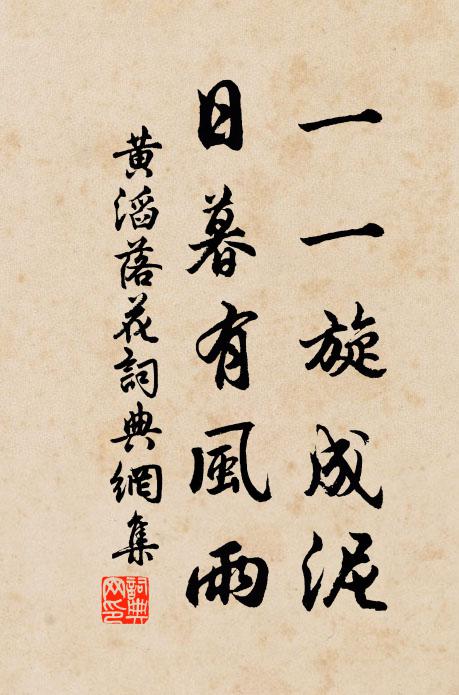 一一旋成泥
日暮有風雨
黄滔落花詞典網集
詞典網印